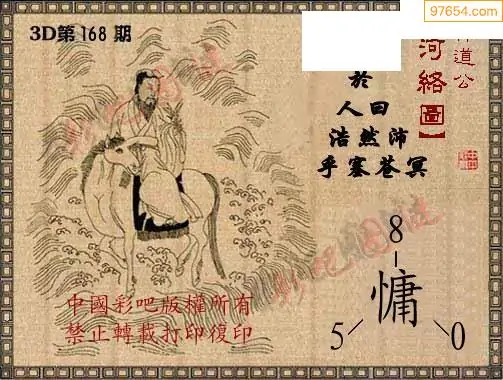 97654.com
3D第168期
道公
河絡圖】
於
人曰
浩然沛
乎塞苍冥
8
慵
5 0
中國彩吧版權所有
禁止轉載打印復印